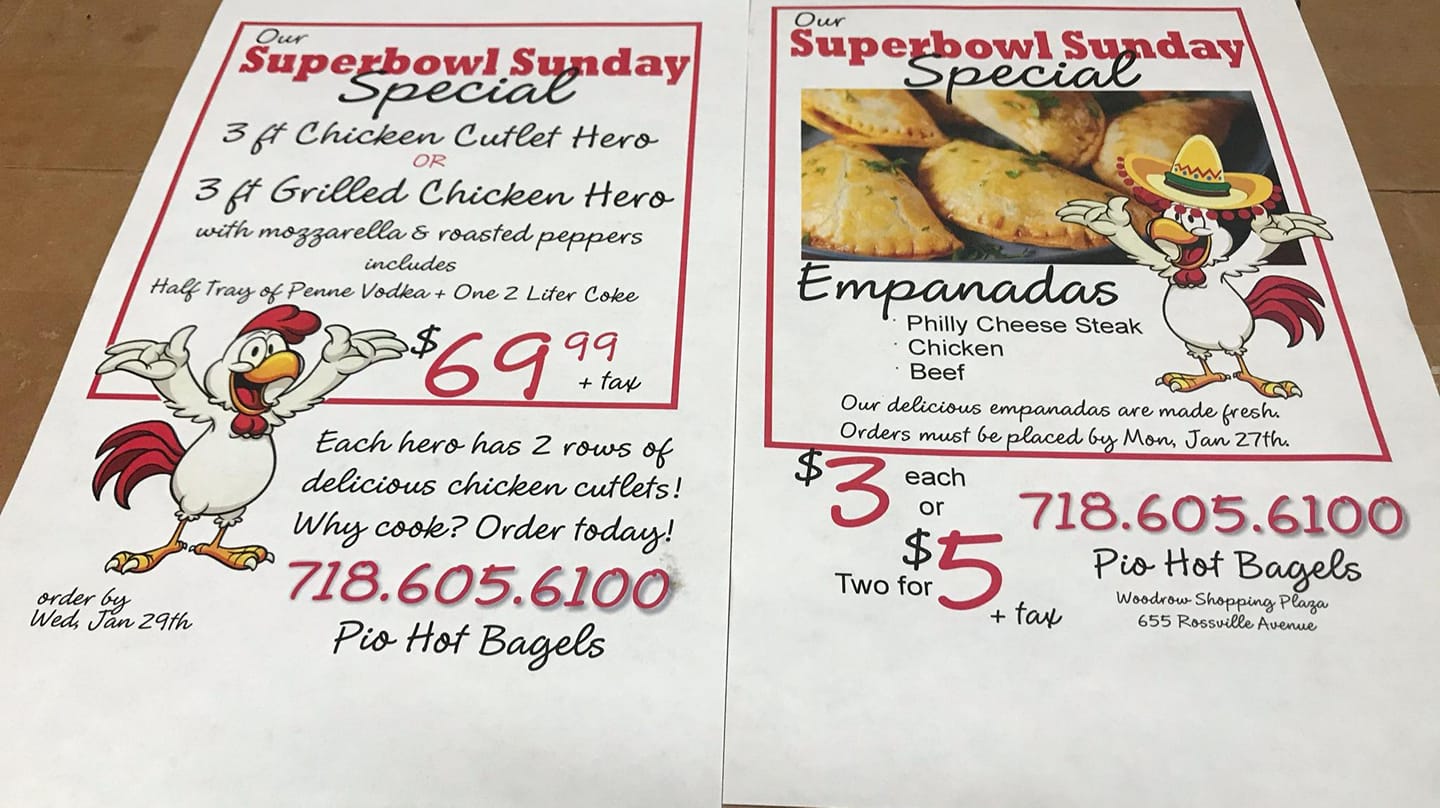 Our
Superbowl Sunday
Special
3 ft Chicken Cutlet Hero
OR
3 ft Grilled Chicken Hero
with mozzarella & roasted peppers
includes
Half Tray of Penne Vodka + One 2 Liter Coke
$69 99
+ tax
Each hero has 2 rows of
delicious chicken cutlets!
Why cook? Order today!
718.605.6100
order by
Wed, Jan 29th
Pio Hot Bagels
Our
Superbowl Sunday
Special
Empanadas
· Philly Cheese Steak
· Chicken
· Beef
Our delicious empanadas are made fresh.
Orders must be placed by Mon, Jan 27th.
$3 each
or
Two for $5
+ tax
718.605.6100
Pio Hot Bagels
Woodrow Shopping Plaza
655 Rossville Avenue